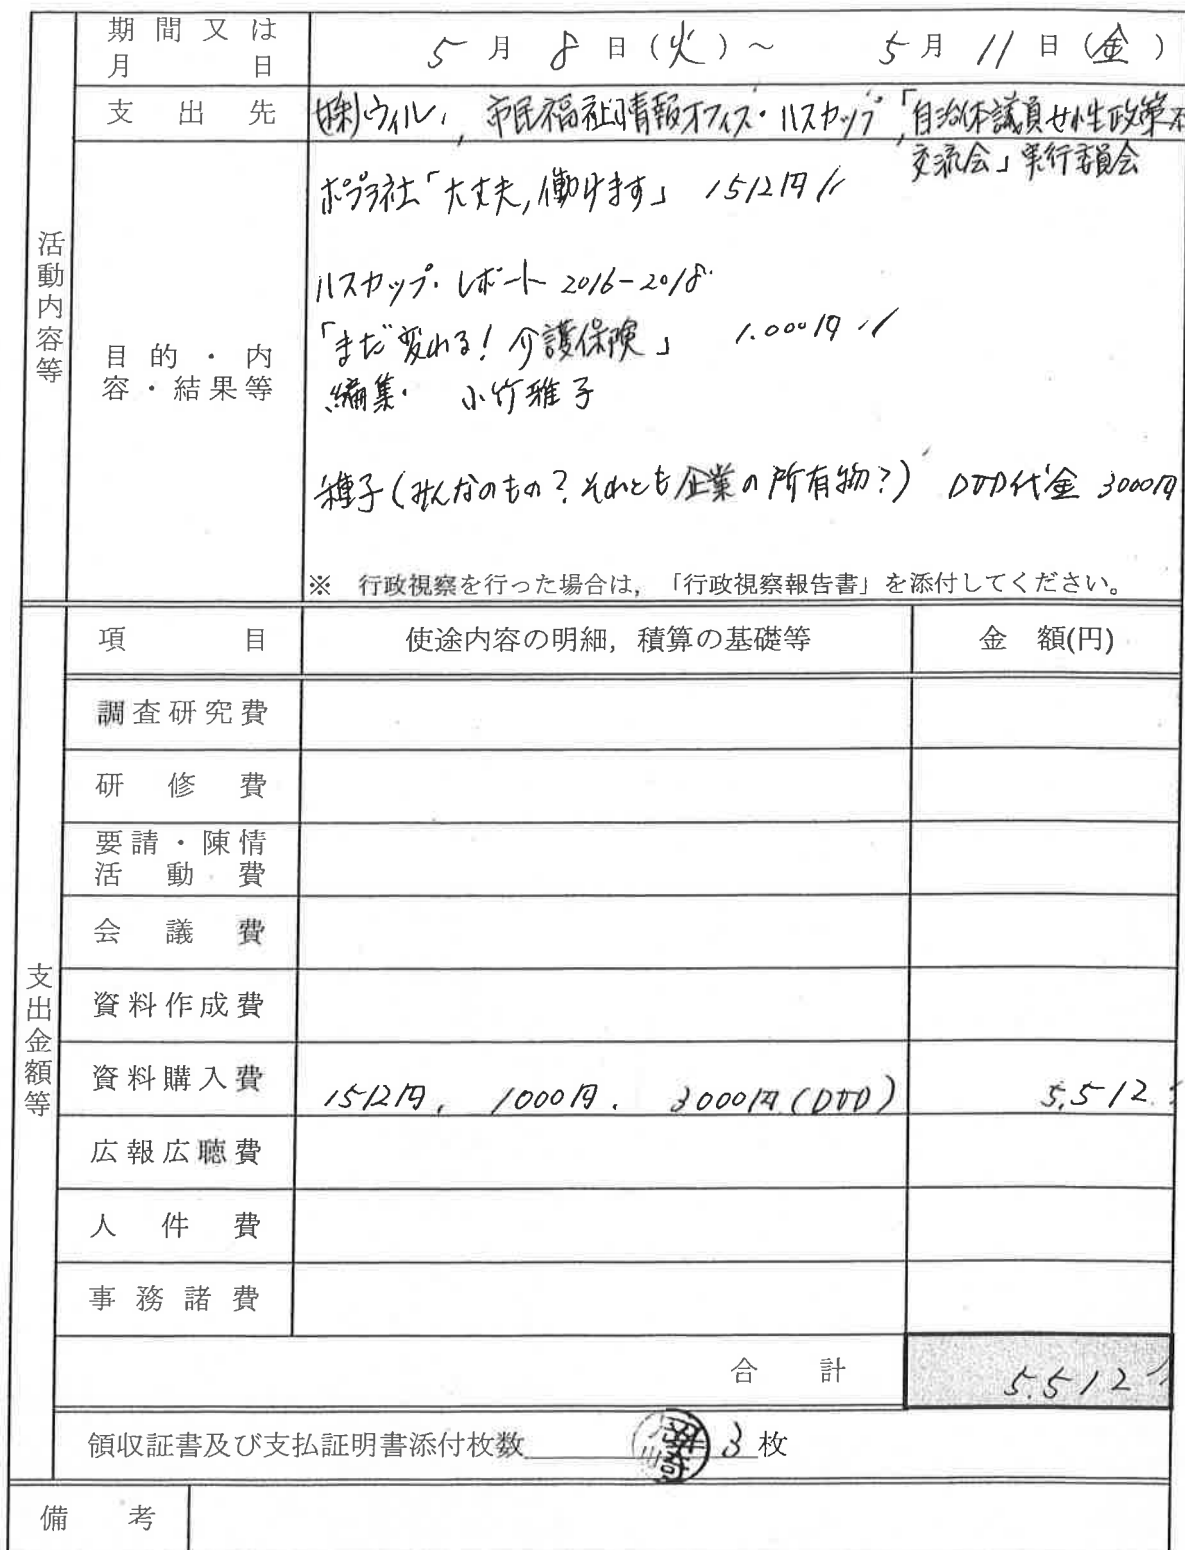 活動内容等
期間又は
月日
5月8日(火)~5月11日(金)
支出先
(株)ウィル, 市民福祉情報オフィス・ハスカップ,「自治体議員女性政策
交流会」実行委員会
目的・内
容・結果等
ポプラ社「大丈夫,働けます」 1512円
ハスカップ・レポート 2016-2018
「まだ変れる!介護保険」 1.000円
編集・ 小竹雅子
種子(みんなのもの?それとも企業の所有物?) DVD代金 3000円
※ 行政視察を行った場合は,「行政視察報告書」を添付してください。
支出金額等
項目 使途内容の明細,積算の基礎等 金額(円)
調査研究費
研修費
要請・陳情
活動費
会議費
資料作成費
資料購入費 1512円, 1000円. 3000円(DVD) 5,512.
広報広聴費
人件費
事務諸費
合計 5.512
領収証書及び支払証明書添付枚数 3枚
備考